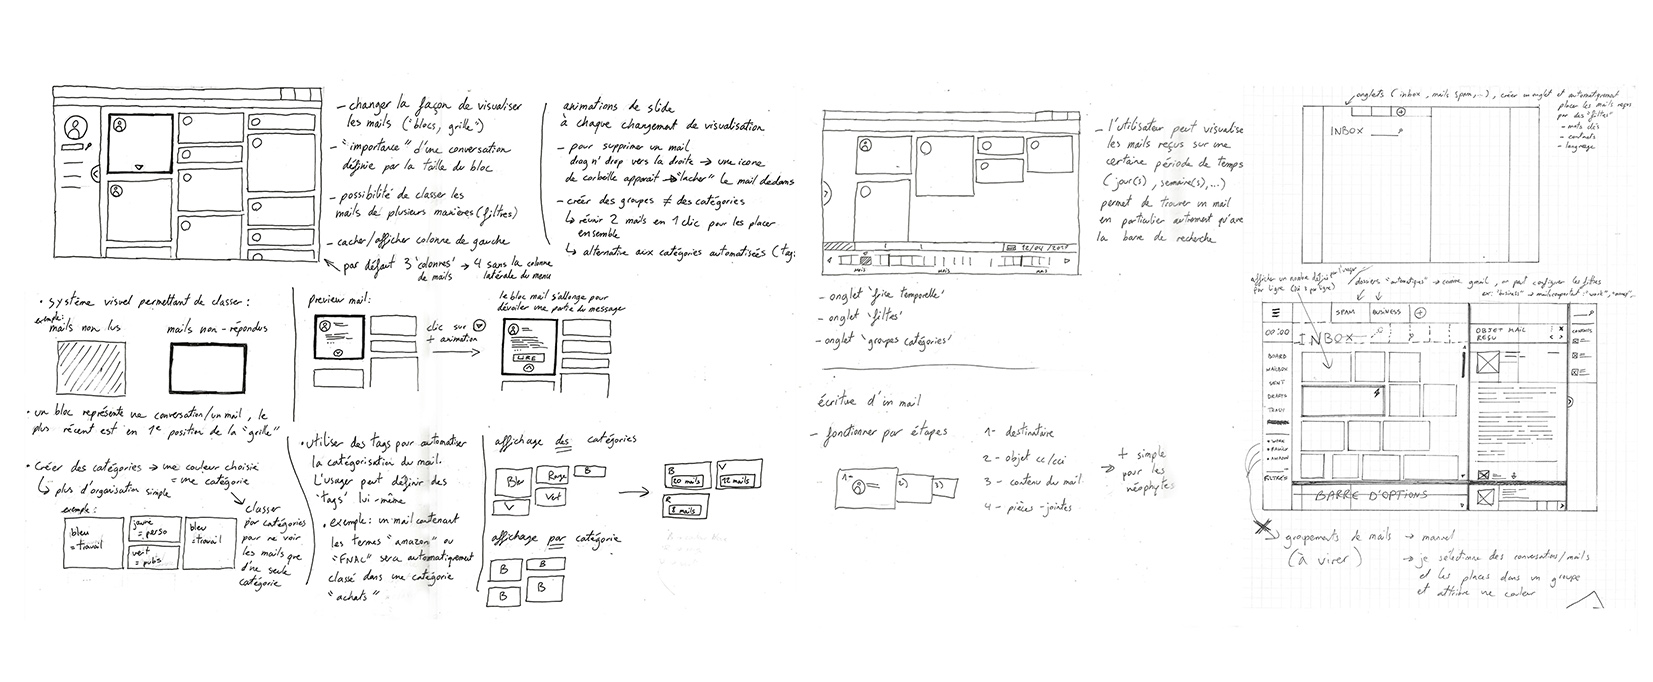 - changer la façon de visualiser
les mails ("blocs, grille")
- "importance" d'une conversation
définie par la taille du bloc
- possibilité de classer les
mails de plusieurs manières (filtres)
- cacher/afficher colonne de gauche
par défaut 3 'colonnes' → 4 sans la colonne
de mails latérale du menu
animations de slide
à chaque changement de visualisation
- pour supprimer un mail
drag n' drop vers la droite → une icone
de corbeille apparait → "lacher" le mail dedans
- créer des groupes ≠ des catégories
↳ réunir 2 mails en 1 clic pour les placer
ensemble
↳ alternative aux catégories automatisées (tag:
• système visuel permettant de classer :
exemple:
mails non lus
mails non-répondus
• un bloc représente une conversation/un mail, le
plus récent est en 1e position de la "grille"
• Créer des catégories → une couleur choisie
= une catégorie
↳ plus d'organisation simple
exemple :
bleu
= travail
jaune
= perso
vert
= pubs
bleu
= travail
classer
par catégories
pour ne voir
les mails que
d'une seule
catégorie
preview mail:
clic sur
+ animation
le bloc mail s'allonge pour
dévoiler une partie du message
LIRE
• utiliser des tags pour automatiser
la catégorisation du mail.
L'usager peut définir des
'tags' lui-même
• exemple : un mail contenant
les termes "amazon" ou
"FNAC" sera automatiquement
classé dans une catégorie
"achats"
affichage des catégories
Bleu
Rouge
B
V
Vert
B
20 mails
V
22 mails
R
8 mails
affichage par catégorie
B
B
B
B
12/04/2017
MAIS
MAIS
MAI
- l'utilisateur peut visualise
les mails reçus sur une
certaine période de temps
(jour(s), semaine(s),...)
permet de trouver un mail
en particulier autrement qu'avec
la barre de recherche
- onglet 'frise temporelle'
- onglet 'filtres'
- onglet 'groupes catégories'
écriture d'un mail
- fonctionner par étapes
1-
2)
3)
1- destinataire
2- objet cc/cci
3- contenu du mail
4- pièces-jointes
→ + simple
pour les
néophytes
onglets (inbox, mails spam,...), créer un onglet et automatiquement
placer les mails reçus
par des "filtres"
- mots clés
- contacts
- langage
INBOX
afficher un nombre défini par l'usager
par ligne (ici 3 par ligne)
dossiers "automatiques" → comme gmail, on peut configurer les filtres
ex: "business" → mails comportant : "work",
SPAM
BUSINESS
00:00
INBOX
OBJET MAIL
RESU
X
BOARD
MAILBOX
SENT
DRAFTS
TRASH
• WORK
• FAMILY
• AMAZON
FILTRES
CONTACTS
BARRE D'OPTIONS
groupements de mails → manuel
(à virer)
→ je sélectionne des conversations/mails
et les places dans un groupe
et attribue une couleur